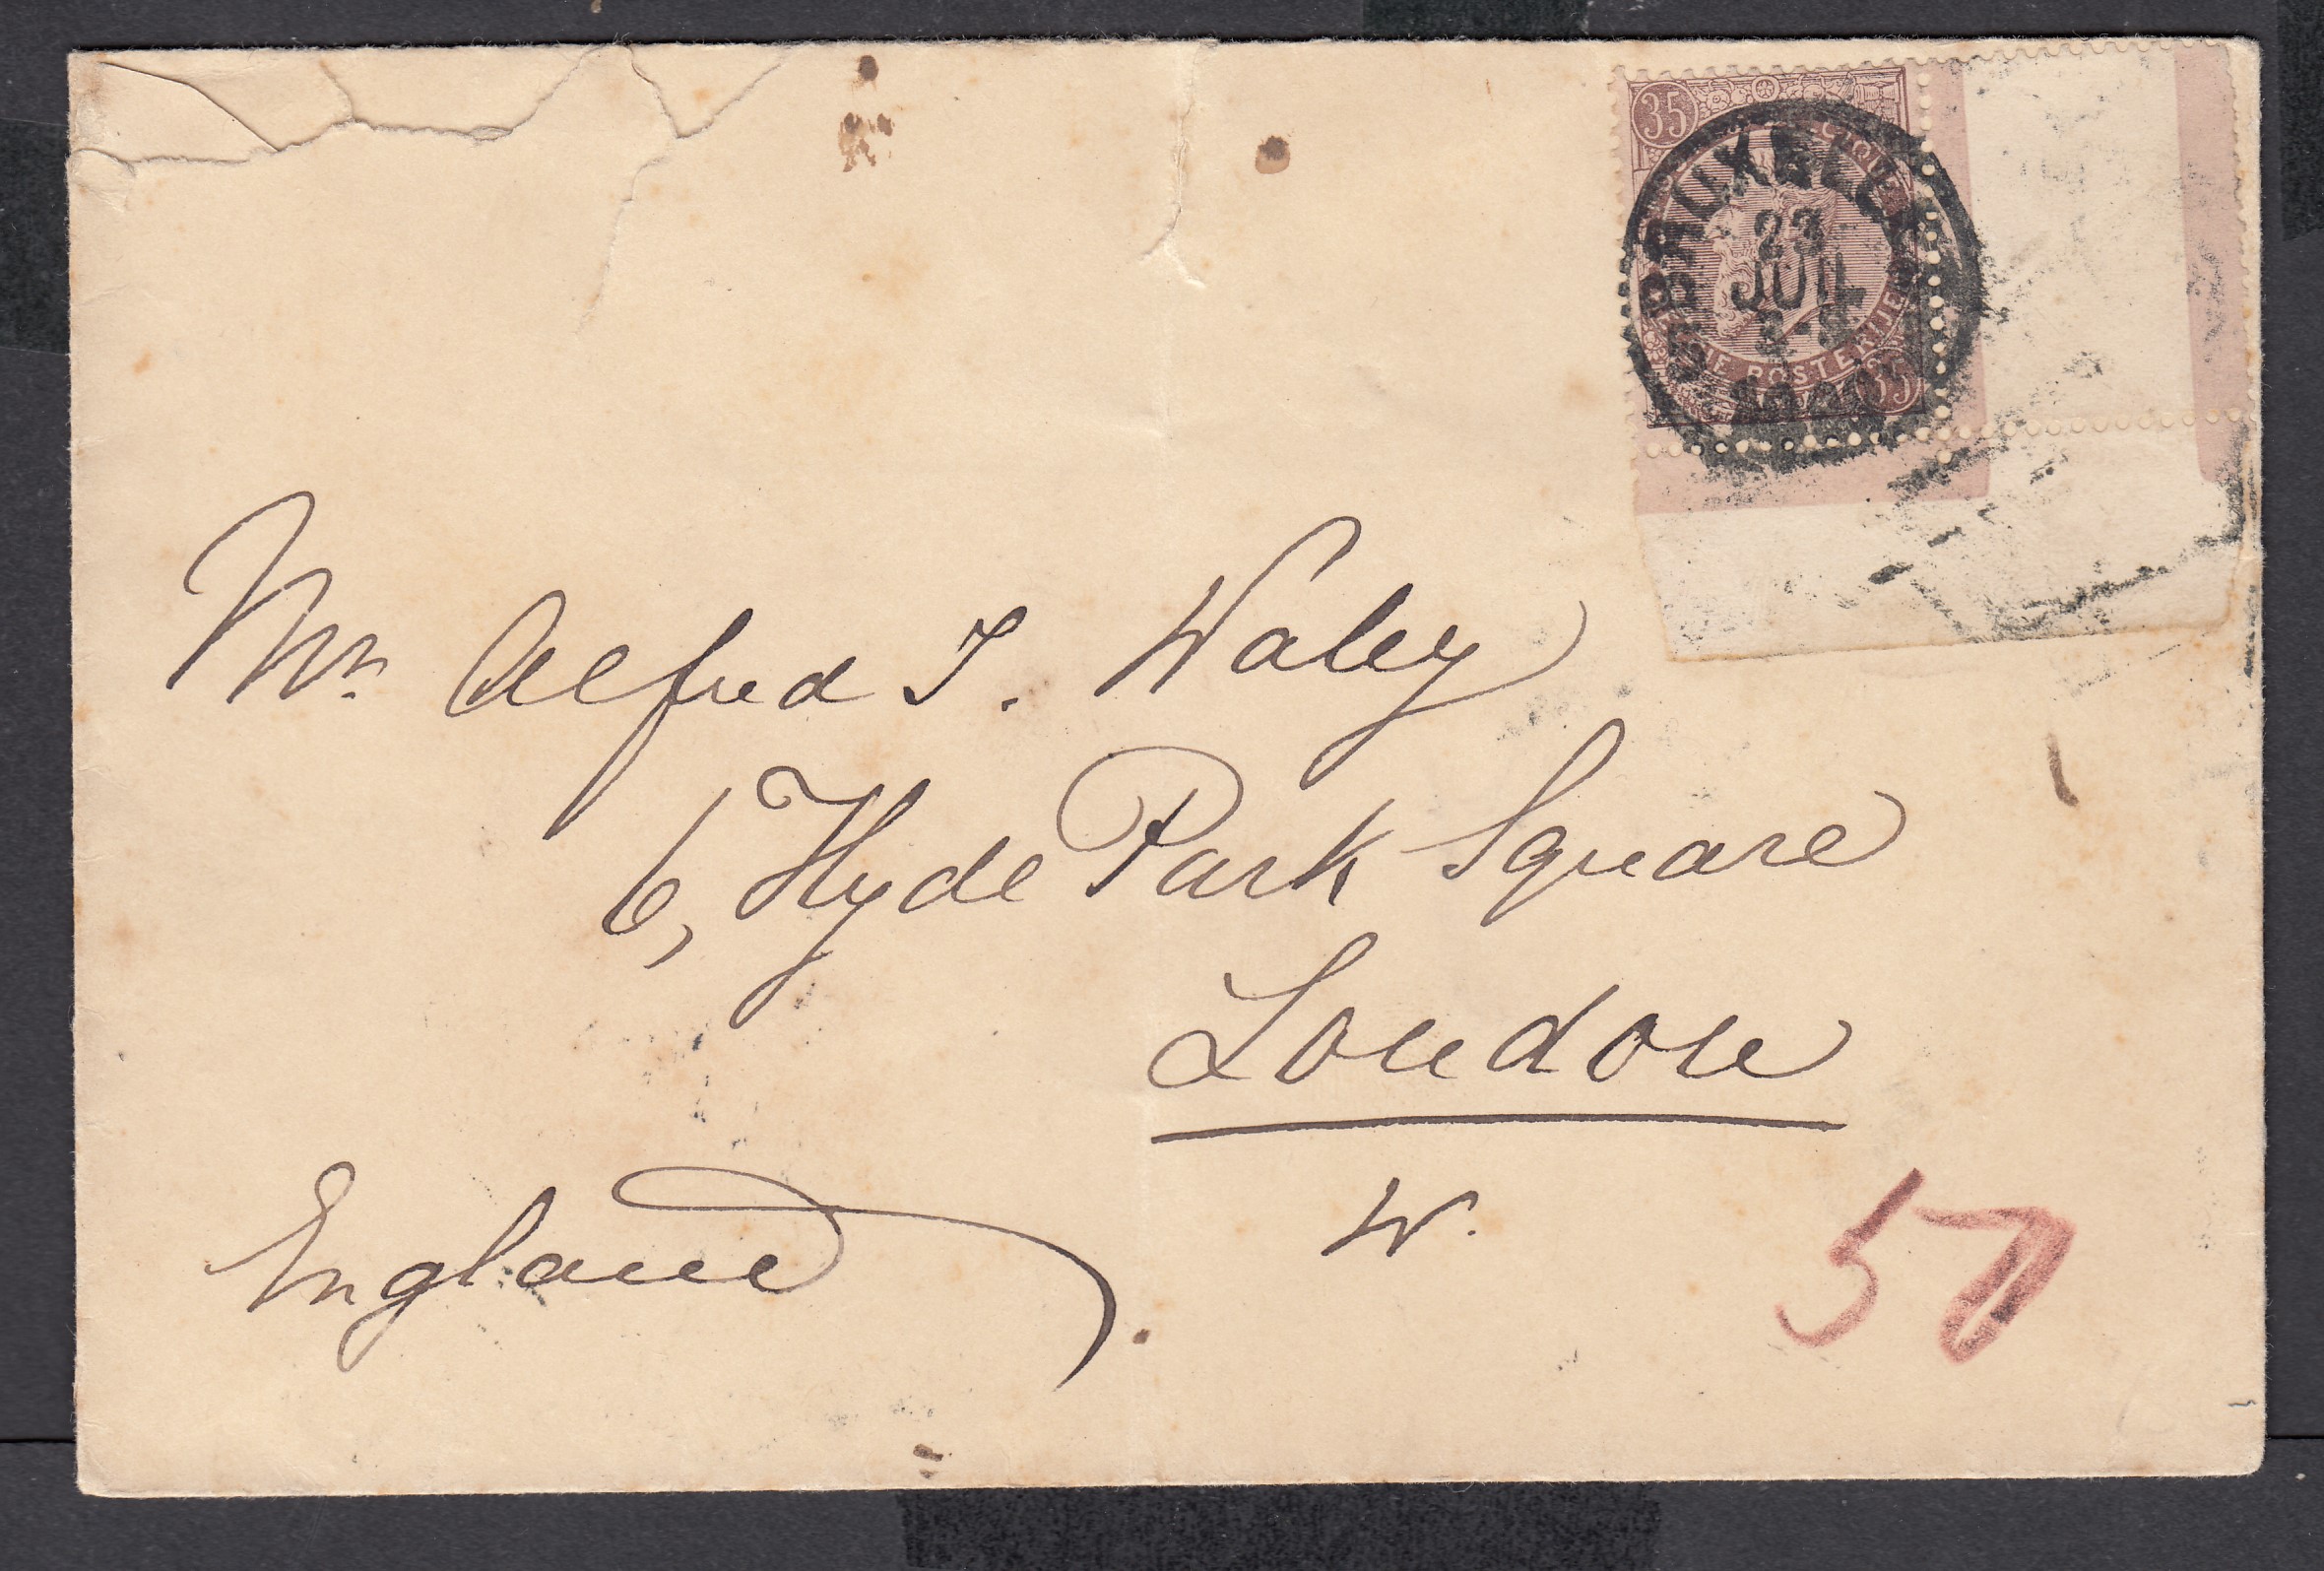 35
BRUXELLES
23
JUIL
POSTERIJEN
35
Mr. Alfred J. Waley
6, Hyde Park Square
London
W.
England
50